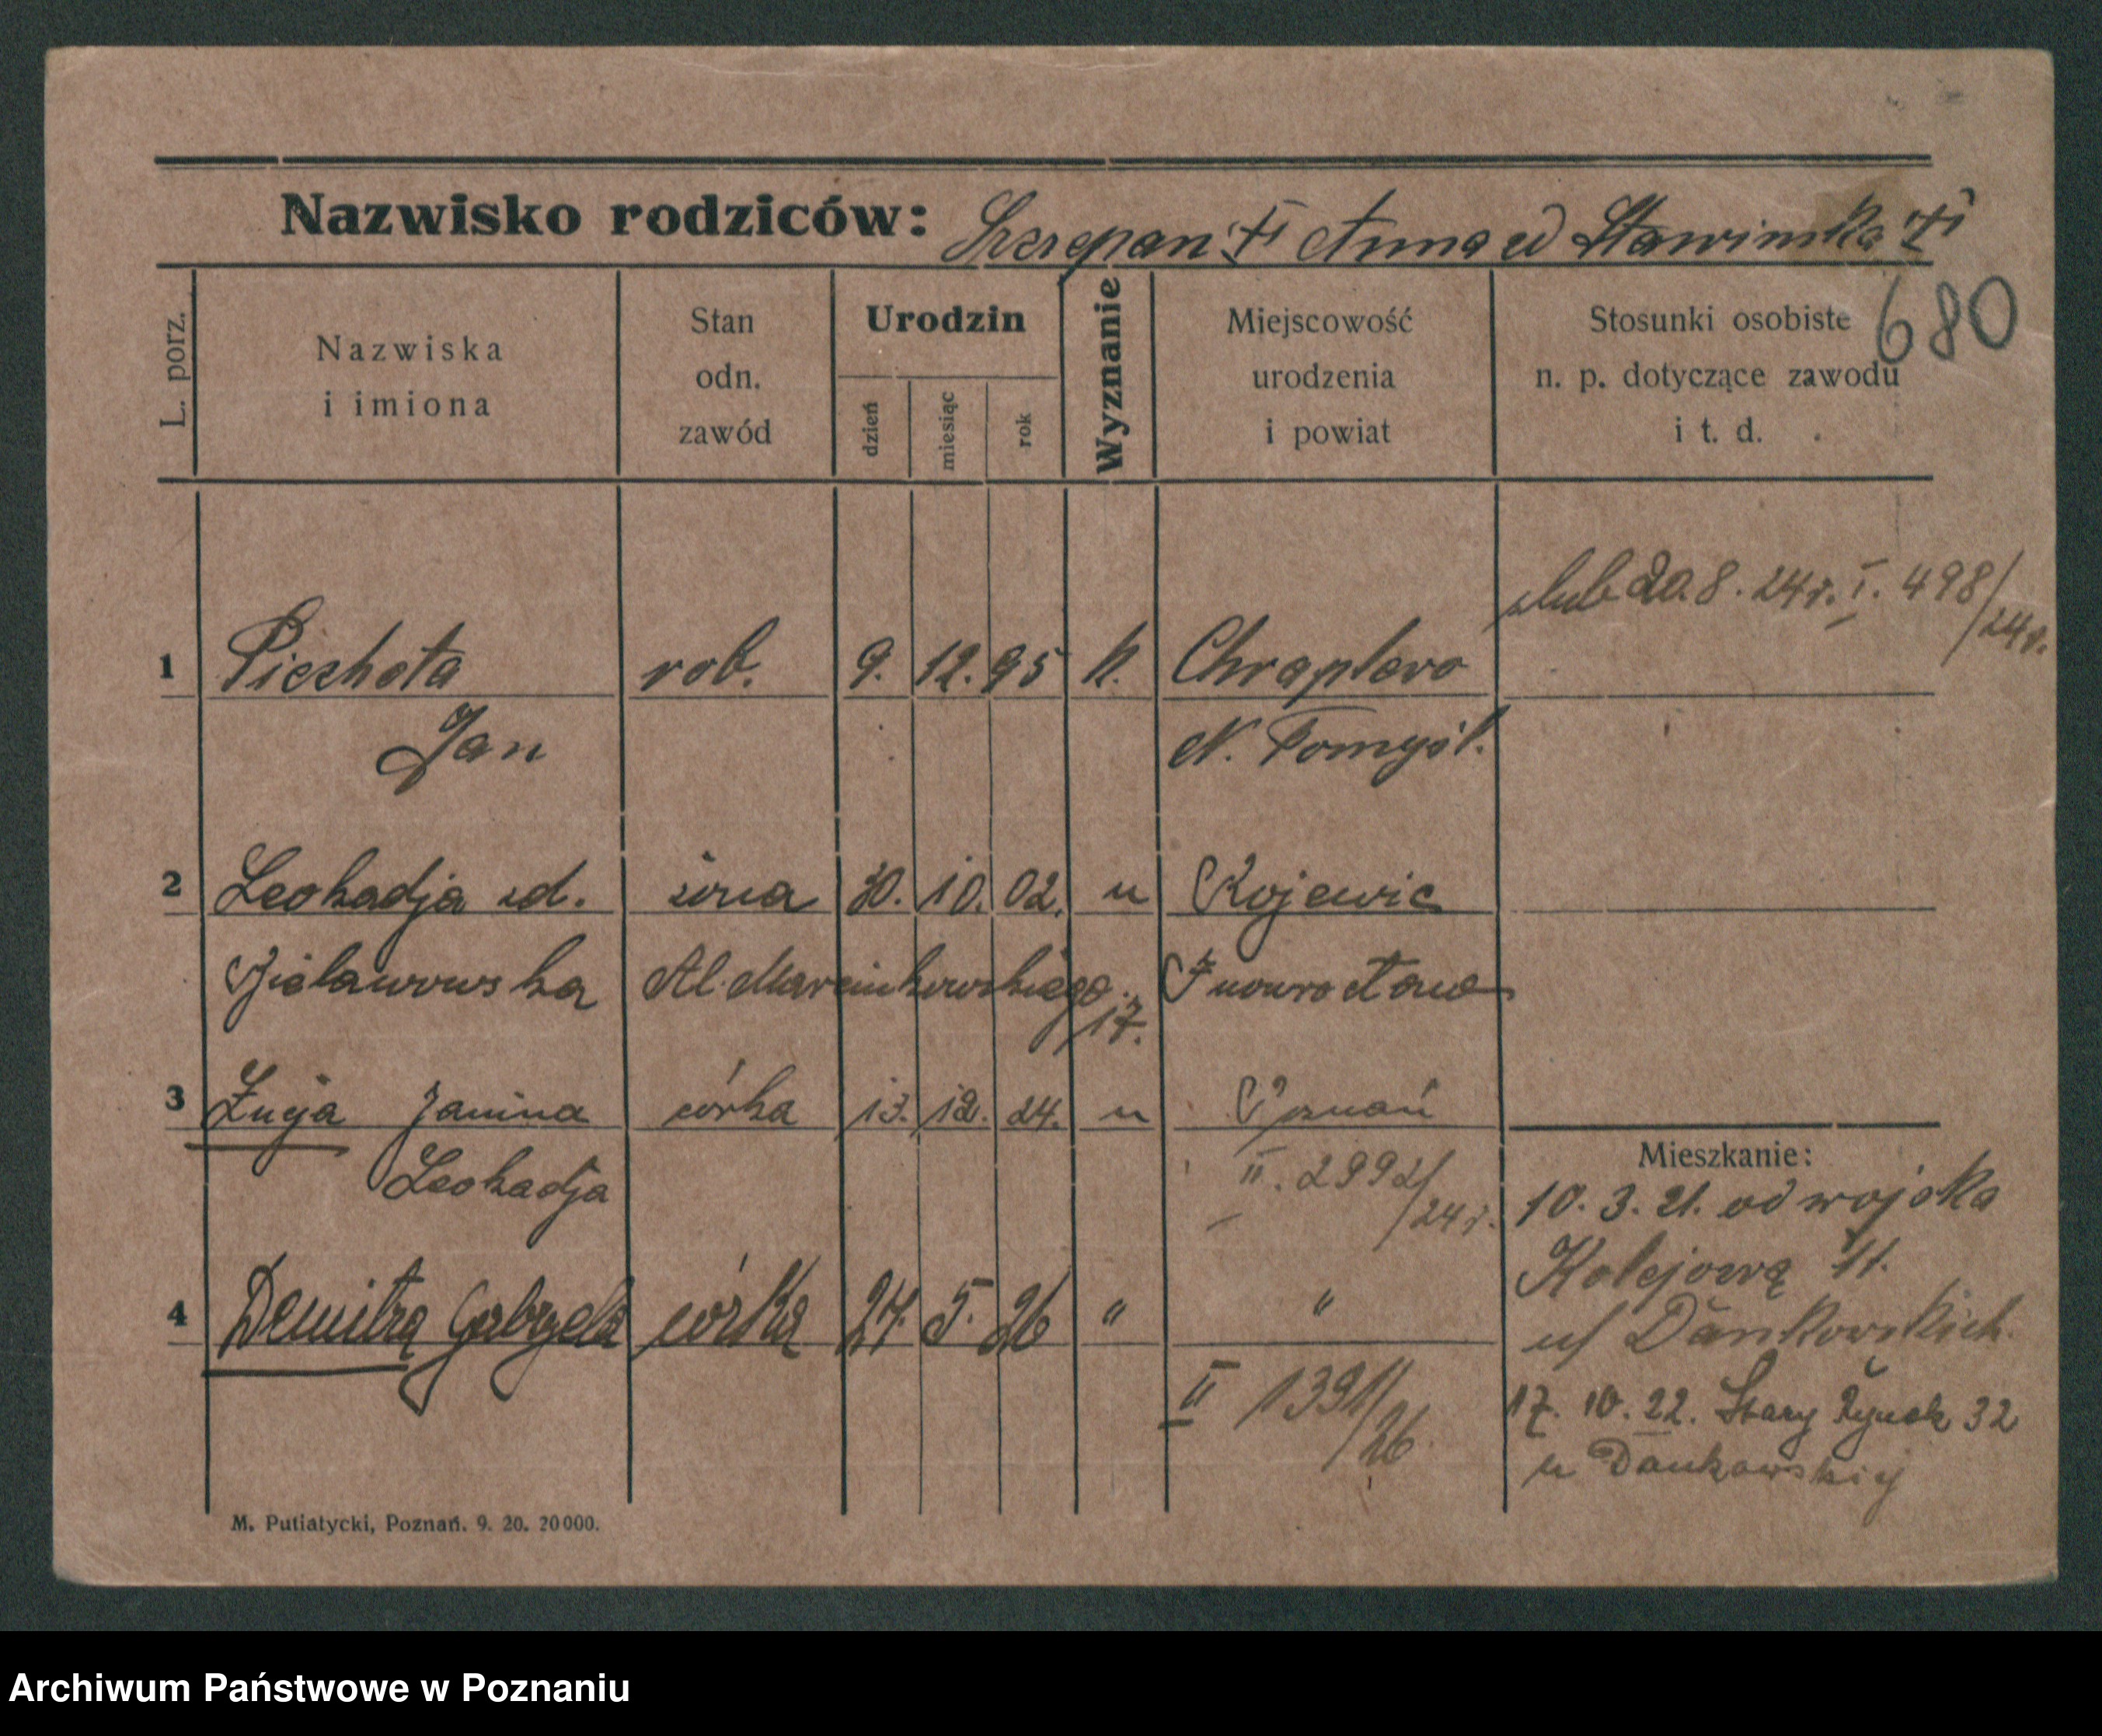 Nazwisko rodziców: Szczepan Anna zd Sławińska
680
L. porz.
Nazwiska i imiona
Stan odn. zawód
Urodzin
dzień miesiąc rok
Wyznanie
Miejscowość urodzenia i powiat
Stosunki osobiste n. p. dotyczące zawodu i t. d.
ślub 20.8.24r. I. 498/24r.
1 Piechota rob. 9. 12. 95 k. Chraplewo
Jan N. Tomyśl.
2 Leokadja zd. żona 30. 10. 02. " Rojewice
Bielawowska Al. Marcinkowskiego 17. Inowrocław
3 Łucja Janina córka 13. 12. 24. " Poznań
Leokadja II. 2992/24r.
4 Gabryela córka 27. 5. 26 " "
II 1391/26.
Mieszkanie:
10. 3. 21. od wojska
Kolejową 11.
u/ Dankowskich.
17. 10. 22. Stary Rynek 32
u Dankowskiej
M. Putiatycki, Poznań. 9. 20. 20000.
Archiwum Państwowe w Poznaniu